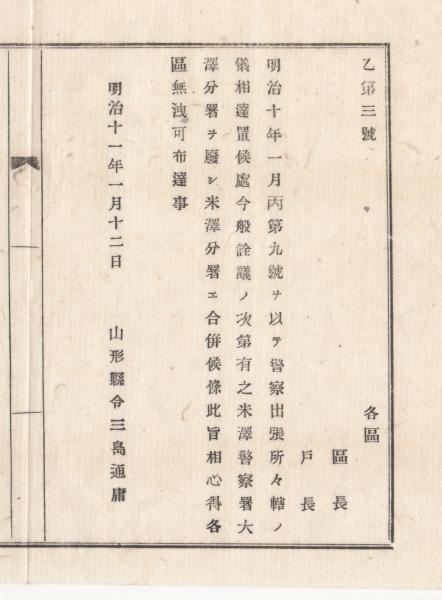 乙第三號
各區
區長
戸長
明治十年一月丙第九號ヲ以テ警察出張所々轄ノ
儀相達置候處今般詮議ノ次第有之米澤警察署大
澤分署ヲ廢シ米澤分署エ合併候條此旨相心得各
區無洩可布達事
明治十一年一月十二日　山形縣令三島通庸